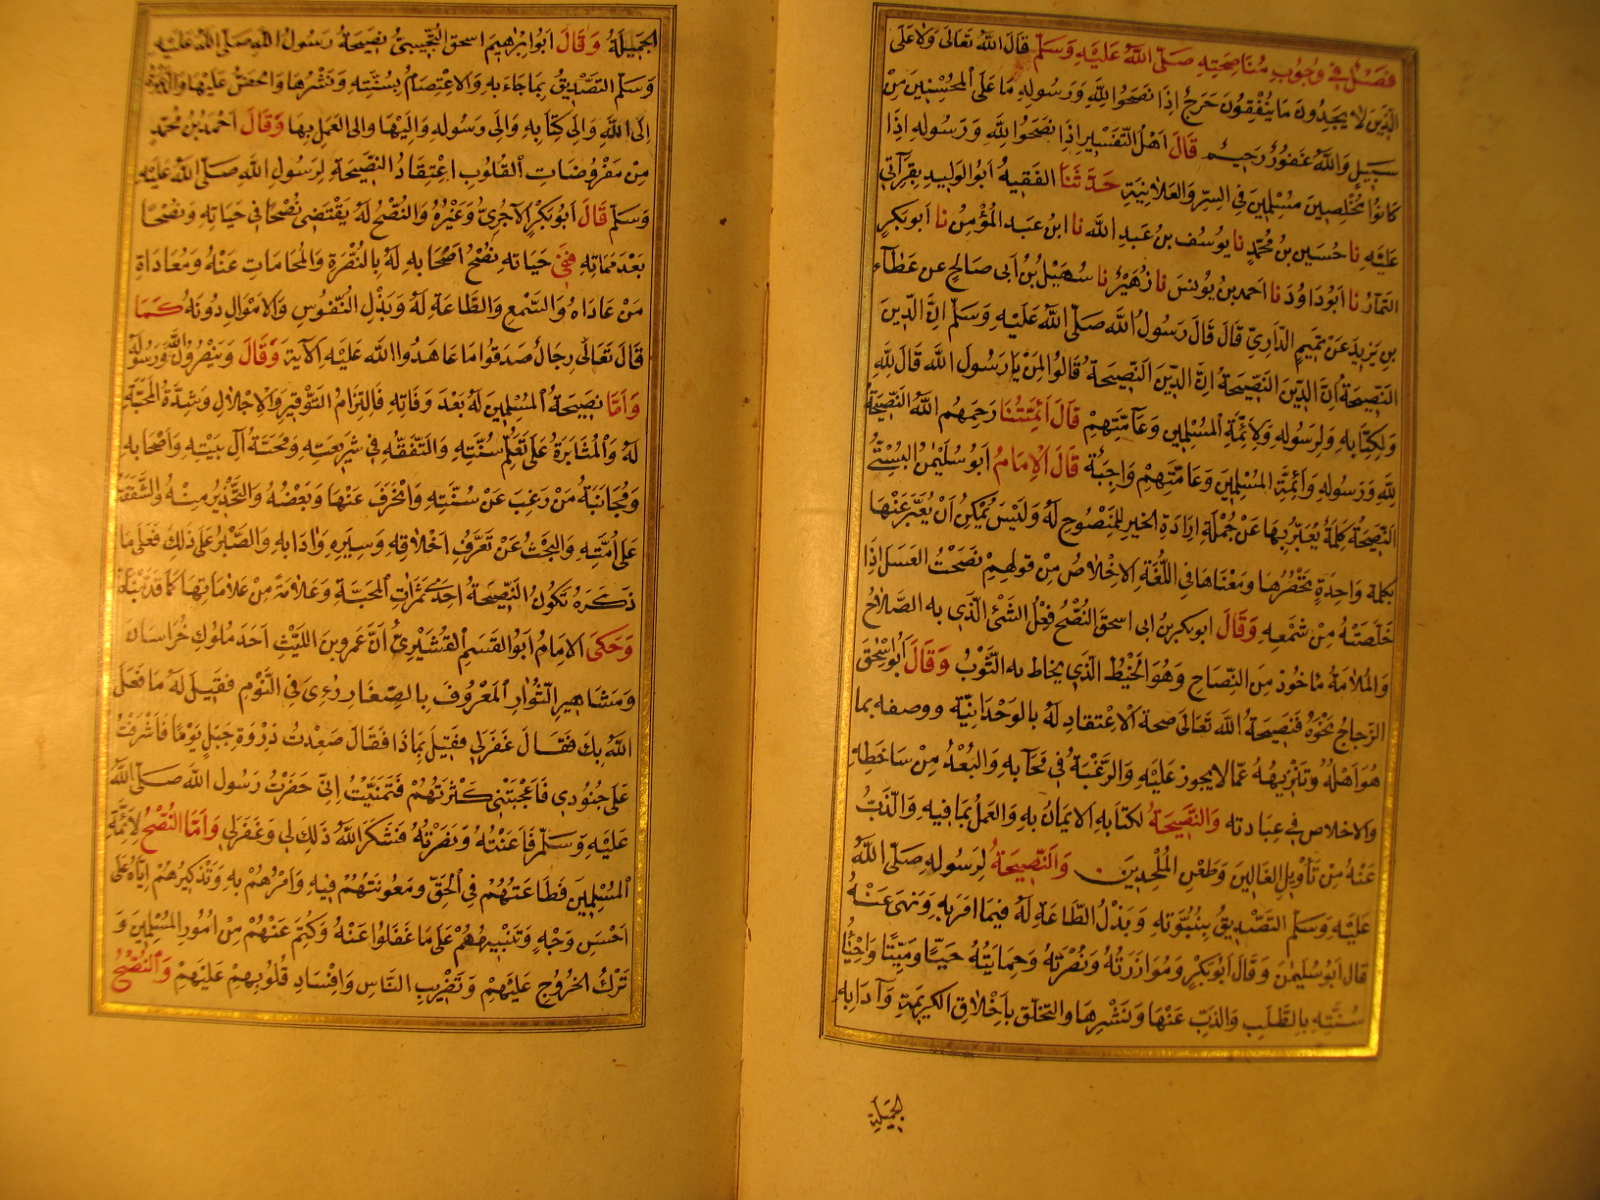 فصل في وجوب مناصحته صلى الله عليه وسلم قال الله تعالى ولا على
الذين لا يجدون ما ينفقون حرج اذا نصحوا لله ورسوله ما على المحسنين من
سبيل والله غفور رحيم قال اهل التفسير اذا نصحوا لله ورسوله اذا
كانوا مخلصين مسلمين في السر والعلانية حدثنا الفقيه ابو الوليد بقرآتي
عليه نا حسين بن محمد نا يوسف بن عبد الله نا ابن عبد المؤمن نا ابو بكر
التمار نا ابو داود نا احمد بن يونس نا زهير نا سهيل بن ابى صالح عن عطاء
بن يزيد عن تميم الداري قال قال رسول الله صلى الله عليه وسلم ان الدين
النصيحة ان الدين النصيحة ان الدين النصيحة قالوا لمن يا رسول الله قال لله
ولكتابه ولرسوله ولائمة المسلمين وعامتهم قال ائمتنا رحمهم الله النصيحة
لله ورسوله وائمة المسلمين وعامتهم واجبة قال الامام ابو سليمن البستي
النصيحة كلمة يعبر بها عن جملة ارادة الخير للمنصوح له وليس يمكن ان يعبر عنها
بكلمة واحدة تحصرها ومعناها في اللغة الاخلاص من قولهم نصحت العسل اذا
خلصته من شمعه وقال ابو بكر بن ابى اسحق النصح فعل الشئ الذي به الصلاح
والملامة ماخوذ من النصاح وهو الخيط الذي يخاط به الثوب وقال ابو اسحق
الزجاج نحوه فنصيحة الله تعالى صحة الاعتقاد له بالوحدانية ووصفه بما
هو اهله وتنزيهه عما لا يجوز عليه والرغبة في محابه والبعد من ساخطه
والاخلاص في عبادته والنصيحة لكتابه الايمان به والعمل بما فيه والذب
عنه من تأويل الغالين وطعن الملحدين والنصيحة لرسوله صلى الله
عليه وسلم التصديق بنبوته وبذل الطاعة له فيما امر به ونهى عنه
قال ابو سليمن وقال ابو بكر وموازرته ونصرته وحمايته حيا وميتا واحياء
سنته بالطلب والذب عنها ونشرها والتخلق باخلاق الكريمة وآدابه
الجميلة
الجميلة وقال ابو ابرهيم اسحق التجيبي نصيحة رسول الله صلى الله عليه
وسلم التصديق بما جاء به والاعتصام بسنته ونشرها والحض عليها والدعوة
الى الله والى كتابه والى رسوله واليها والى العمل بها وقال احمد بن محمد
من مفروضات القلوب اعتقاد النصيحة لرسول الله صلى الله عليه
وسلم قال ابو بكر الآجري وغيره والنصح له يقتضى نصحا في حياته ونصحا
بعد مماته ففي حياته نصح اصحابه له بالنصرة والمحامات عنه ومعاداة
من عاداه والسمع والطاعة له وبذل النفوس والاموال دونه كما
قال تعالى رجال صدقوا ما عاهدوا الله عليه الآية وقال وينصرون الله ورسوله
واما نصيحة المسلمين له بعد وفاته فالتزام التوقير والاجلال وشدة المحبة
له والمثابرة على تعلم سنته والتفقه في شريعته ومحبة آل بيته واصحابه
ومجانبة من رغب عن سنته وانحرف عنها وبغضه والتحذير منه والشفقة
على امته والبحث عن تعرف اخلاقه وسيره وآدابه والصبر على ذلك فعلى ما
ذكره تكون النصيحة احد ثمرات المحبة وعلامة من علاماتها كما قدمناه
وحكى الامام ابو القسم القشيري ان عمرو بن الليث احد ملوك خراسان
ومشاهير الثوار المعروف بالصفار رءى في النوم فقيل له ما فعل
الله بك فقال غفر لي فقيل بماذا فقال صعدت ذروة جبل يوما فاشرفت
على جنودي فاعجبتني كثرتهم فتمنيت اني حضرت رسول الله صلى الله
عليه وسلم فاعنته ونصرته فشكر الله ذلك لي وغفر لي واما النصح لائمة
المسلمين فطاعتهم في الحق ومعونتهم فيه وامرهم به وتذكيرهم اياه على
احسن وجه وتنبيههم على ما غفلوا عنه وكتم عنهم من امور المسلمين و
ترك الخروج عليهم وتضريب الناس وافساد قلوبهم عليهم والنصح